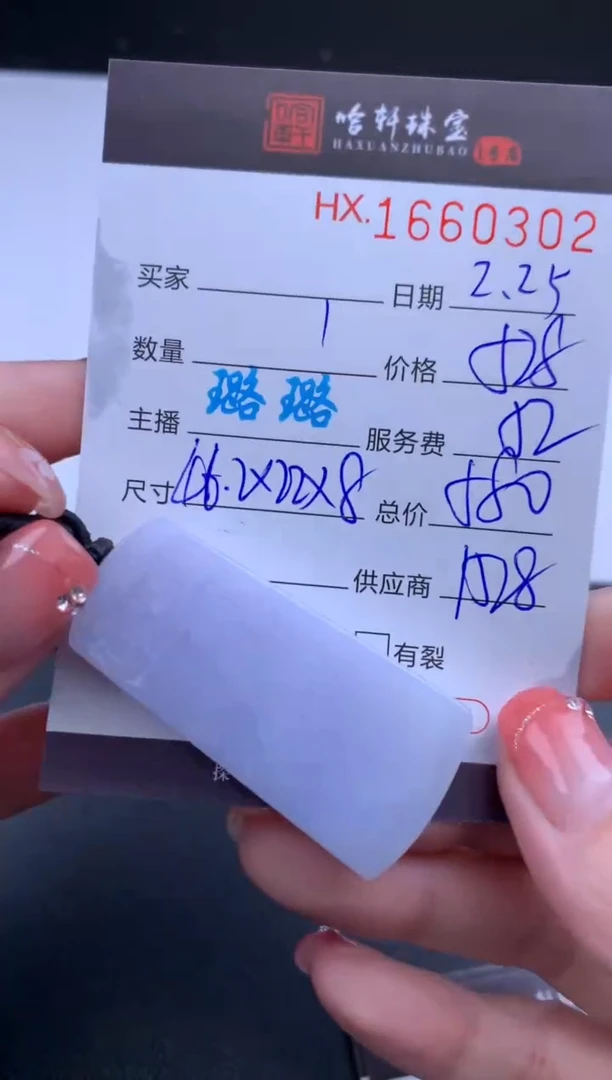 哈轩珠宝
HAXUANZHUBAO
HX.1660302
买家 日期 2.25
数量 1 价格 528
主播 璐璐 服务费 52
尺寸 46.2x22x8 总价 580
供应商 1528
有裂